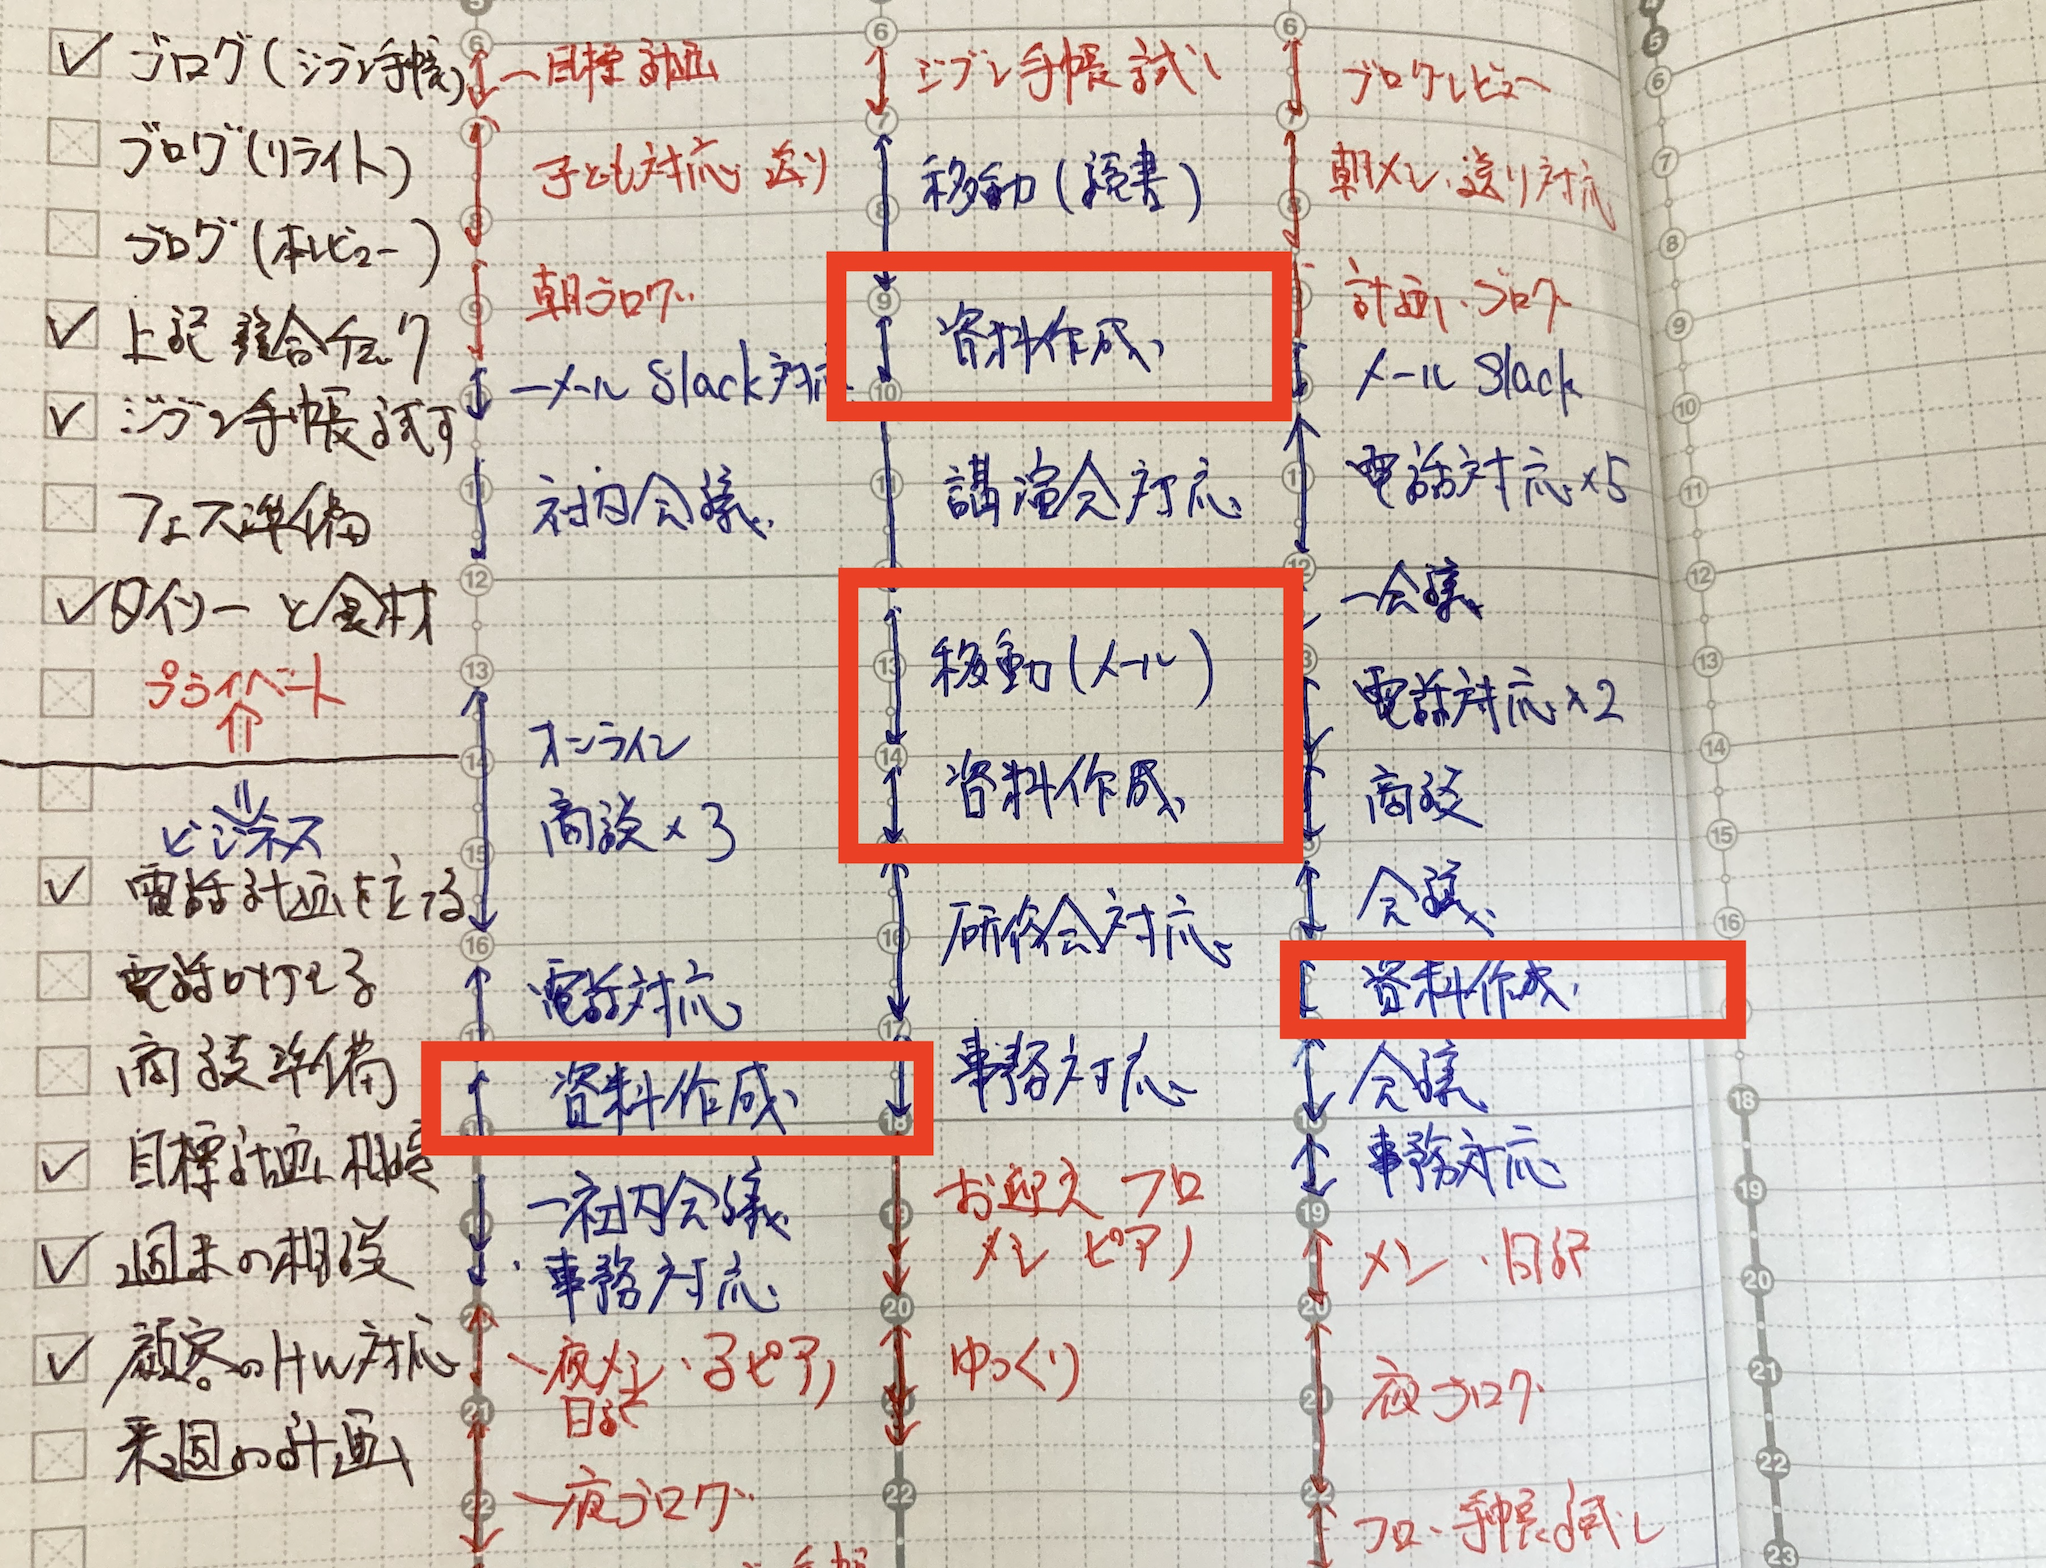 ブログ(ジブン手帳)
ブログ(リライト)
ブログ(本レビュー)
上記 整合チェック
ジブン手帳試す
フェス準備
ダイソーと食材
プライベート
ビジネス
電話計画を立てる
電話かける
商談準備
目標計画相談
週末の相談
顧客のHW対応
来週の計画
5
6
目標計画
子ども対応 送り
8
朝ブログ
9
メール Slack対応
社内会議
11
12
13
オンライン
14
商談×3
15
16
電話対応
17
資料作成
社内会議
19
事務対応
20
夜メシ・子ピアノ
日記
21
夜ブログ
22
6
ジブン手帳試し
7
移動(読書)
8
9
資料作成
10
講演会対応
11
移動(メール)
13
14
資料作成
研修会対応
16
17
事務対応
18
お迎え フロ
19
メシ ピアノ
20
ゆっくり
22
6
ブログレビュー
7
朝メシ・送り対応
8
計画・ブログ
メール Slack
電話対応×5
11
12
会議
電話対応×2
商談
会議
資料作成
会議
18
事務対応
19
メシ・日記
20
夜ブログ
21
22
フロ・手帳試し
5
6
7
8
9
10
11
12
13
14
15
16
18
19
20
21
22
23